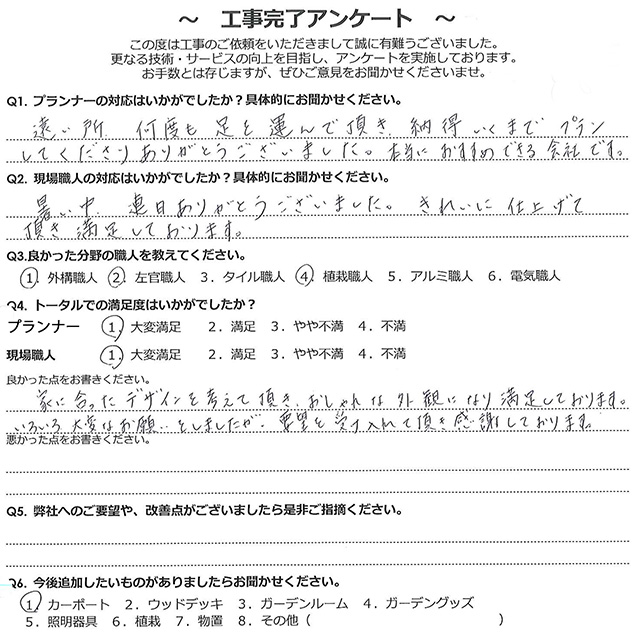 ～ 工事完了アンケート ～
この度は工事のご依頼をいただきまして誠に有難うございました。
更なる技術・サービスの向上を目指し、アンケートを実施しております。
お手数とは存じますが、ぜひご意見をお聞かせくださいませ。
Q1. プランナーの対応はいかがでしたか？具体的にお聞かせください。
遠い所 何度も足を運んで頂き 納得いくまで プラン
してくださりありがとうございました。本当におすすめできる会社です。
Q2. 現場職人の対応はいかがでしたか？具体的にお聞かせください。
暑い中、連日ありがとうございました。きれいに仕上げて
頂き満足しております。
Q3.良かった分野の職人を教えてください。
1. 外構職人 2. 左官職人 3. タイル職人 4. 植栽職人 5. アルミ職人 6. 電気職人
Q4. トータルでの満足度はいかがでしたか？
プランナー 1. 大変満足 2. 満足 3. やや不満 4. 不満
現場職人 1. 大変満足 2. 満足 3. やや不満 4. 不満
良かった点をお書きください。
家に合ったデザインを考えて頂き、おしゃれな外観になり満足しております。
いろいろ大変なお願いをしましたが、要望を受け入れて頂き感謝しております。
悪かった点をお書きください。
Q5. 弊社へのご要望や、改善点がございましたら是非ご指摘ください。
Q6. 今後追加したいものがありましたらお聞かせください。
1. カーポート 2. ウッドデッキ 3. ガーデンルーム 4. ガーデングッズ
5. 照明器具 6. 植栽 7. 物置 8. その他（ ）